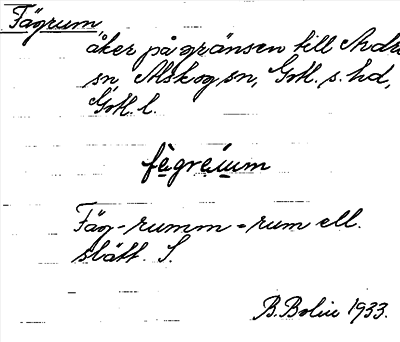 Fägrum
åker på gränsen till Andre
sn, Alskog sn, Gotl. s. hd,
Gotl. l.
Fäg-rumm = rum ell.
slätt. S.
B. Bolin 1933.